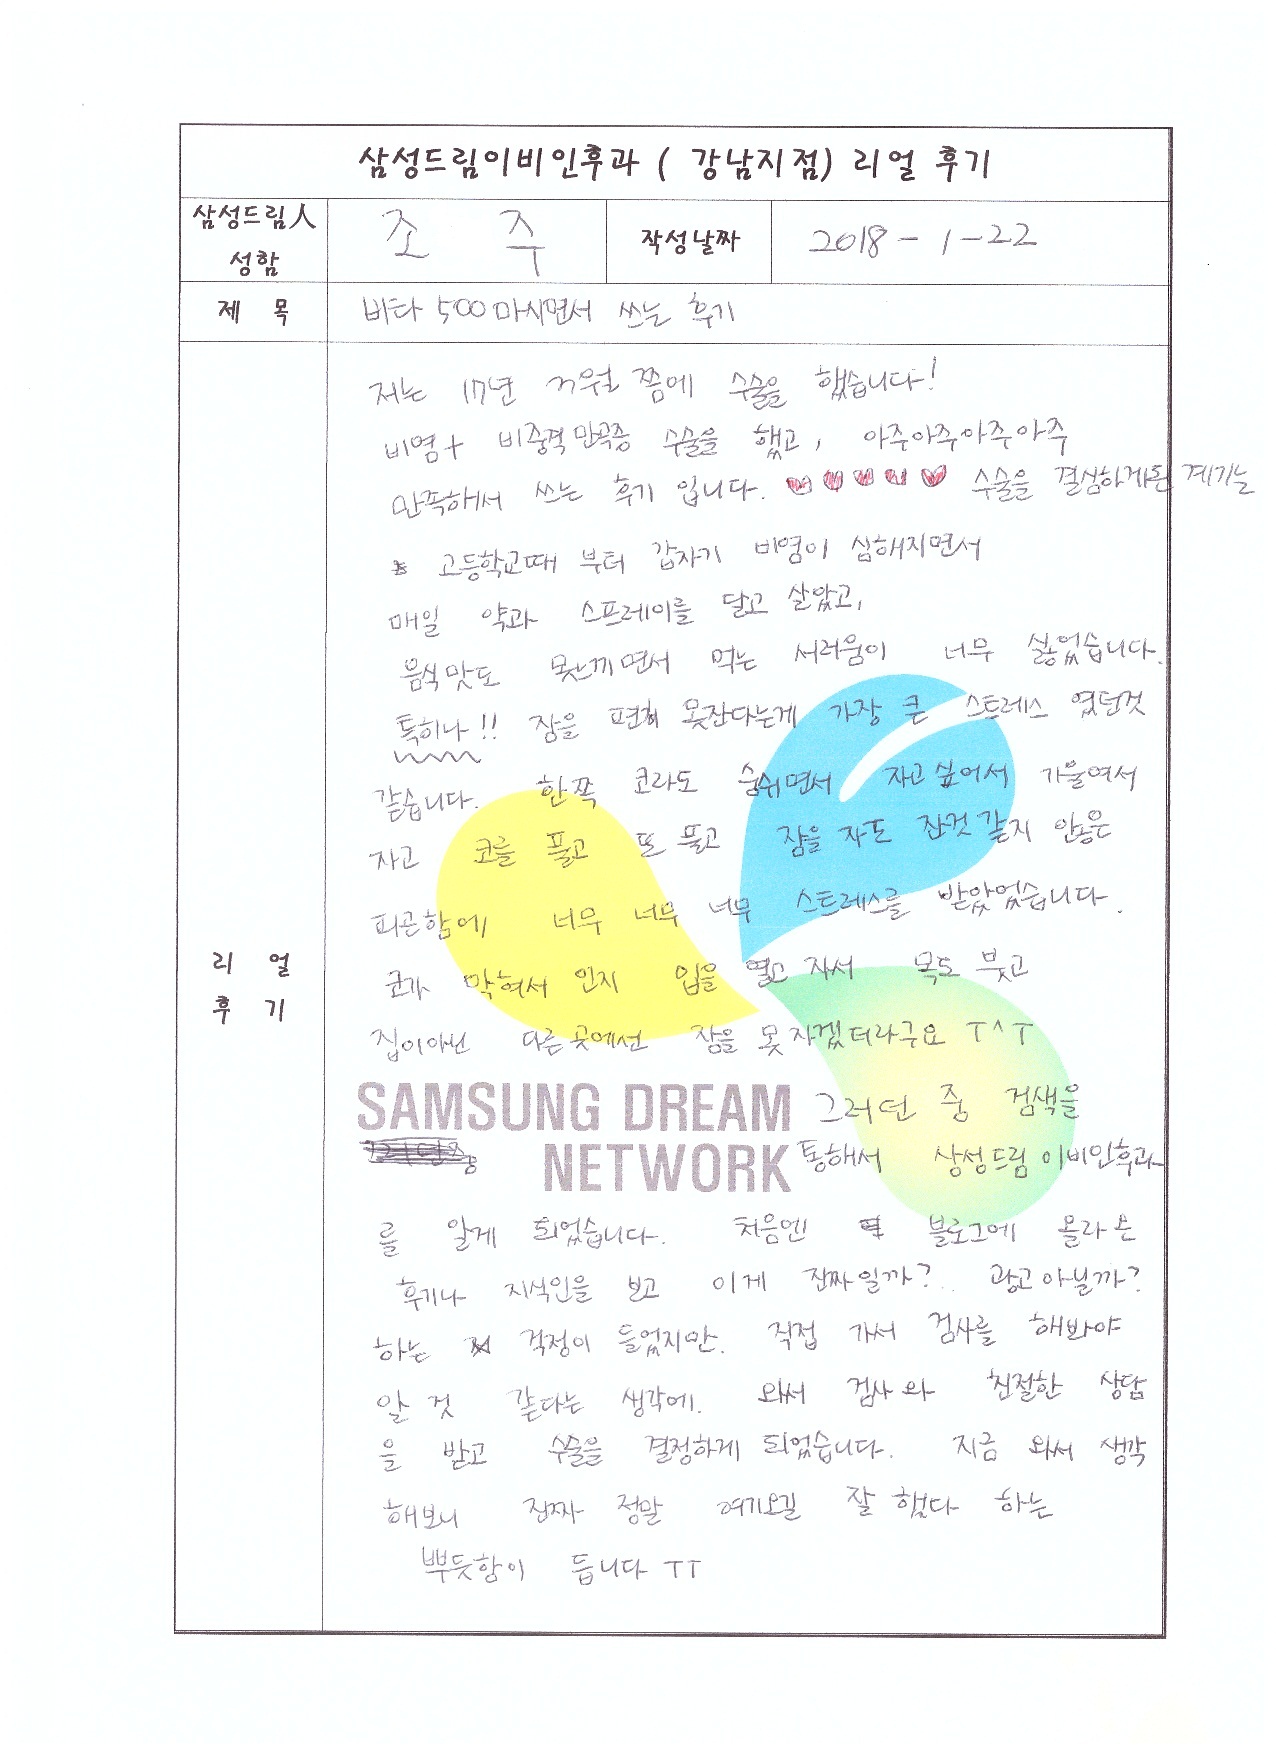 삼성드림이비인후과 ( 강남지점) 리얼 후기
삼성드림人 성함
조 주
작성날짜
2018-1-22
제 목
비타 500 마시면서 쓰는 후기
리 얼 후 기
저는 17년 겨울 쯤에 수술을 했습니다!
비염+ 비중격만곡증 수술을 했고, 아주아주아주아주
만족해서 쓰는 후기 입니다. ♥♥♥♥♥ 수술을 결심하게된 계기는
고등학교때 부터 갑자기 비염이 심해지면서
매일 약과 스프레이를 달고 살았고,
음식맛도 못느끼면서 먹는 서러움이 너무 싫었습니다.
특히나!! 잠을 편히 못잔다는게 가장 큰 스트레스 였던것
같습니다. 한쪽 코라도 숨쉬면서 자고싶어서 기울여서
자고 코를 풀고 또 풀고 잠을 자도 잔것같지 안흔
피곤함에 너무 너무 너무 스트레스를 받았었습니다.
코가 막혀서 인지 입을 열고 자서 목도 붓고
집이아닌 다른곳에선 잠을 못자겠더라구요 T^T
SAMSUNG DREAM
NETWORK
그러던 중 검색을
통해서 삼성드림이비인후과
를 알게 되었습니다. 처음엔 블로그에 올라온
후기나 지식인을 보고 이게 진짜일까? 광고아닐까?
하는 걱정이 들었지만. 직접 가서 검사를 해봐야
알 것 같다는 생각에. 와서 검사와 친절한 상담
을 받고 수술을 결정하게 되었습니다. 지금 와서 생각
해보니 진짜 정말 여기오길 잘 했다 하는
뿌듯함이 듭니다 TT